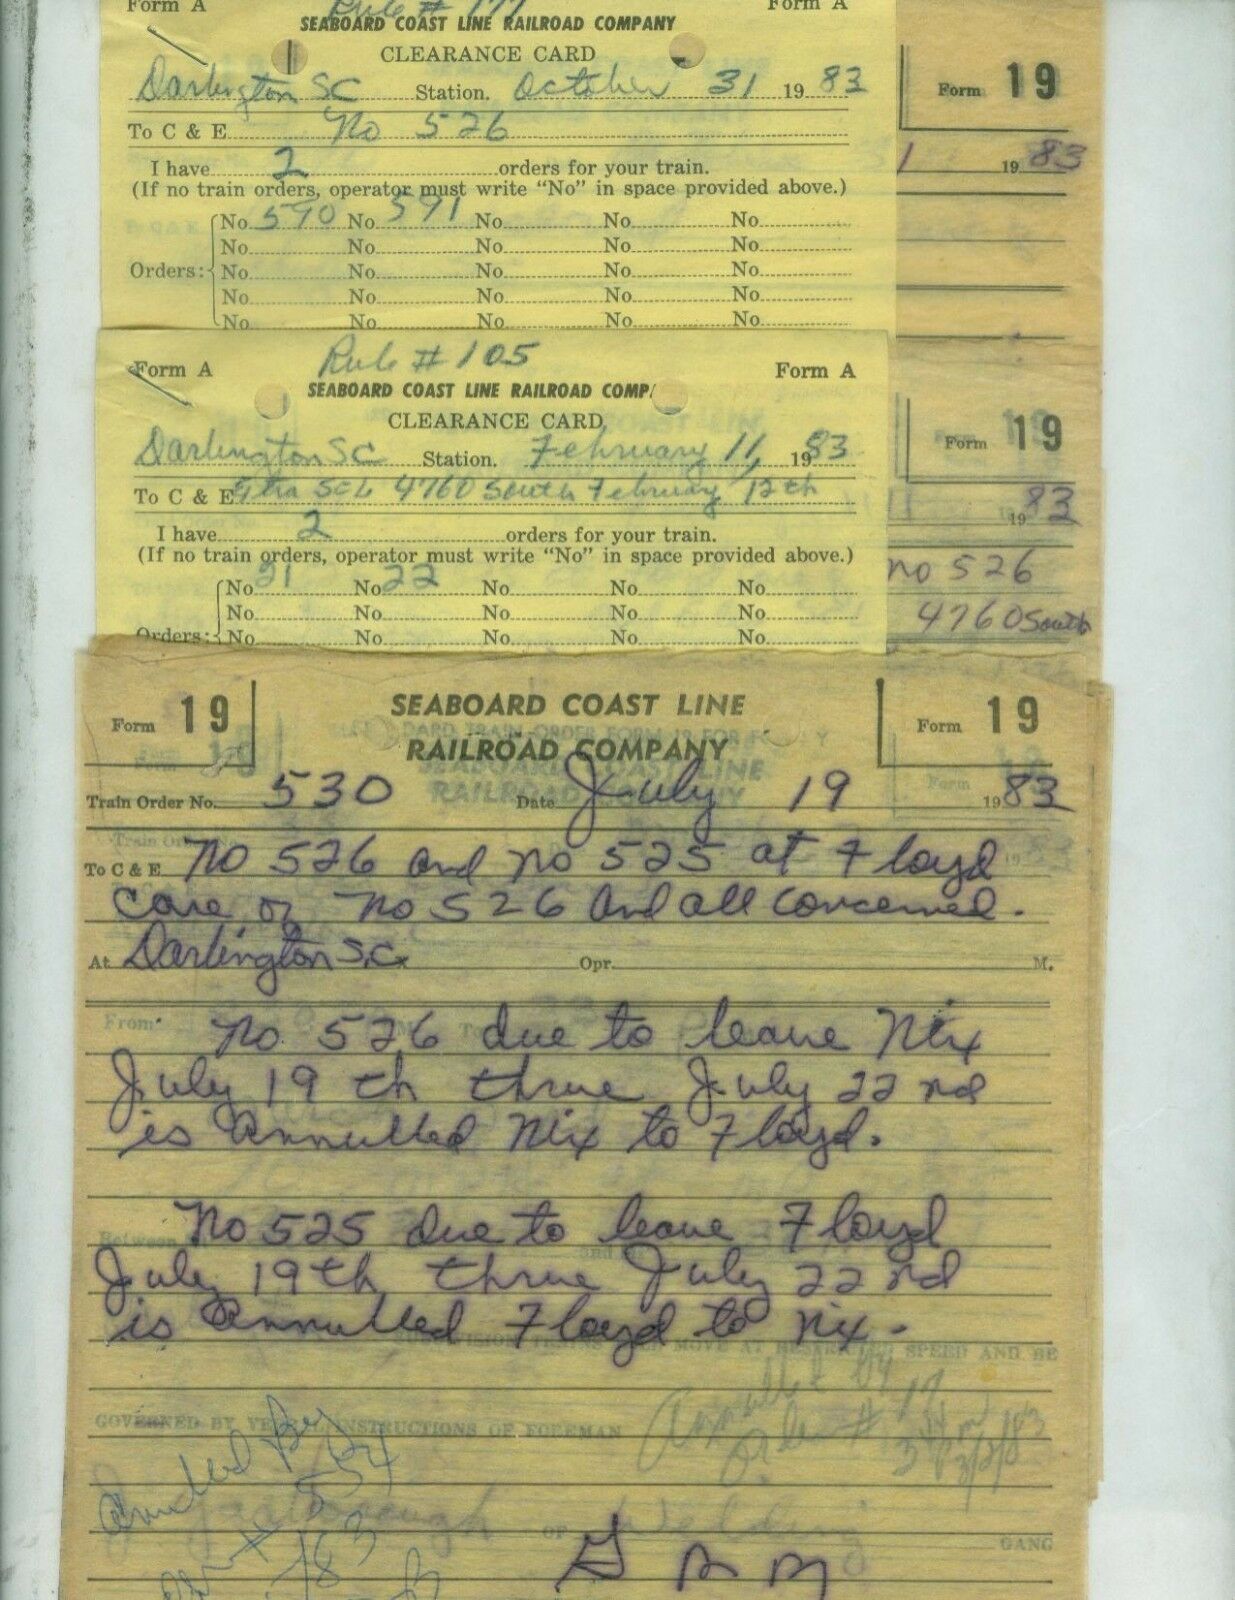 Form A Rule # 177 Form A
SEABOARD COAST LINE RAILROAD COMPANY
CLEARANCE CARD
Darlington SC Station. October 31 19 83
To C & E No 526
I have 2 orders for your train.
(If no train orders, operator must write "No" in space provided above.)
No 590 No 591 No No No
No No No No No
Orders: No No No No No
No No No No No
No No No No No
Form 19
1 19 83
Form A Rule # 105 Form A
SEABOARD COAST LINE RAILROAD COMP
CLEARANCE CARD
Darlington SC Station. February 11, 19 83
To C & E SCL 4760 South February 12th
I have 2 orders for your train.
(If no train orders, operator must write "No" in space provided above.)
No 21 No 22 No No No
No No No No No
Orders: No No No No No
Form 19
11 19 83
No 526
4760 South
Form 19 SEABOARD COAST LINE Form 19
RAILROAD COMPANY
Train Order No. 530 Date July 19 19 83
To C & E No 526 and No 525 at Floyd
care of No 526 and all concerned.
At Darlington S.C. Opr. M.
From
No 526 due to leave Nix
July 19 th thrue July 22 nd
is annulled Nix to Floyd.
Between
No 525 due to leave Floyd
July 19th thrue July 22 nd
is annulled Floyd to Nix.
MOVE AT RESTRICTED SPEED AND BE
GOVERNED BY INSTRUCTIONS OF FOREMAN
Annulled By
Annulled By
534
OF Welding GANG